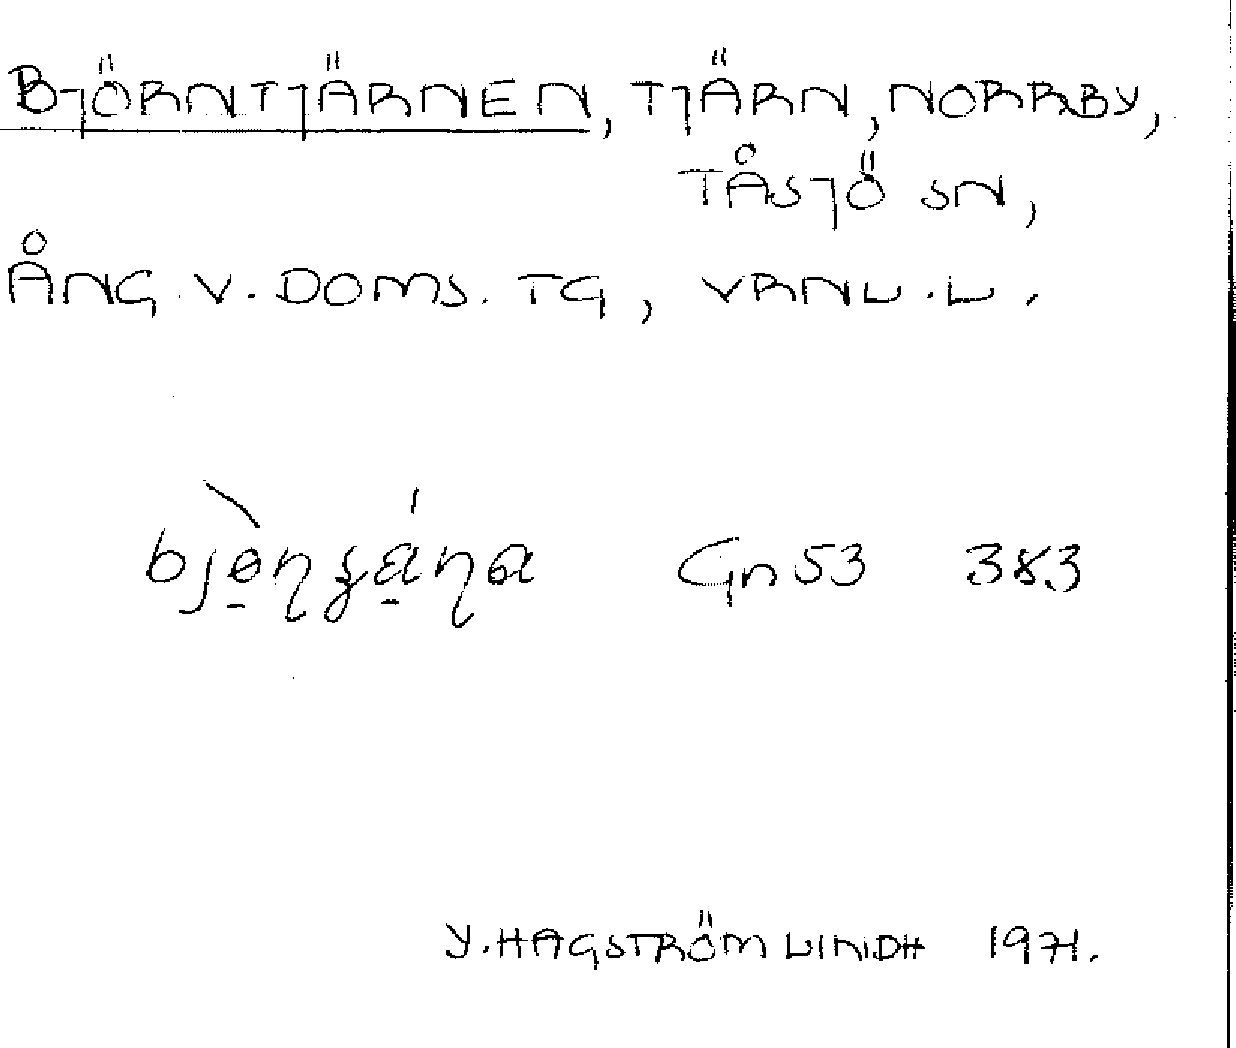 BJÖRNTJÄRNEN, TJÄRN, NORRBY,
TÅSJÖ SN,
ÅNG. V. DOMS. TG, VRNL. L.
Gn 53 383
Y. HAGSTRÖM LINDH 1971.